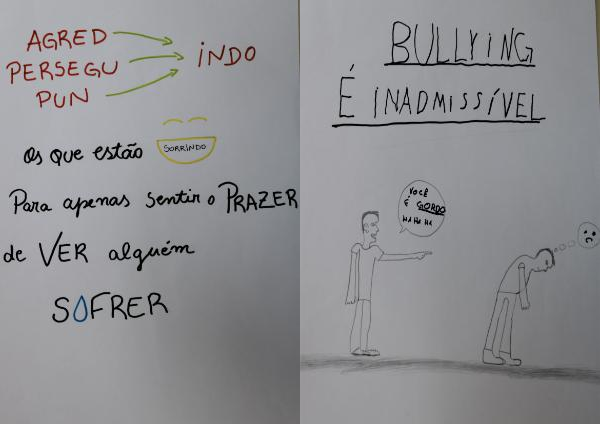 AGRED
PERSEGU
PUN
INDO
Os que estão SORRINDO
Para apenas sentir o PRAZER
de VER alguém
SOFRER
BULLYING
É INADMISSÍVEL
VOCÊ
É GORDO
HA HA HA